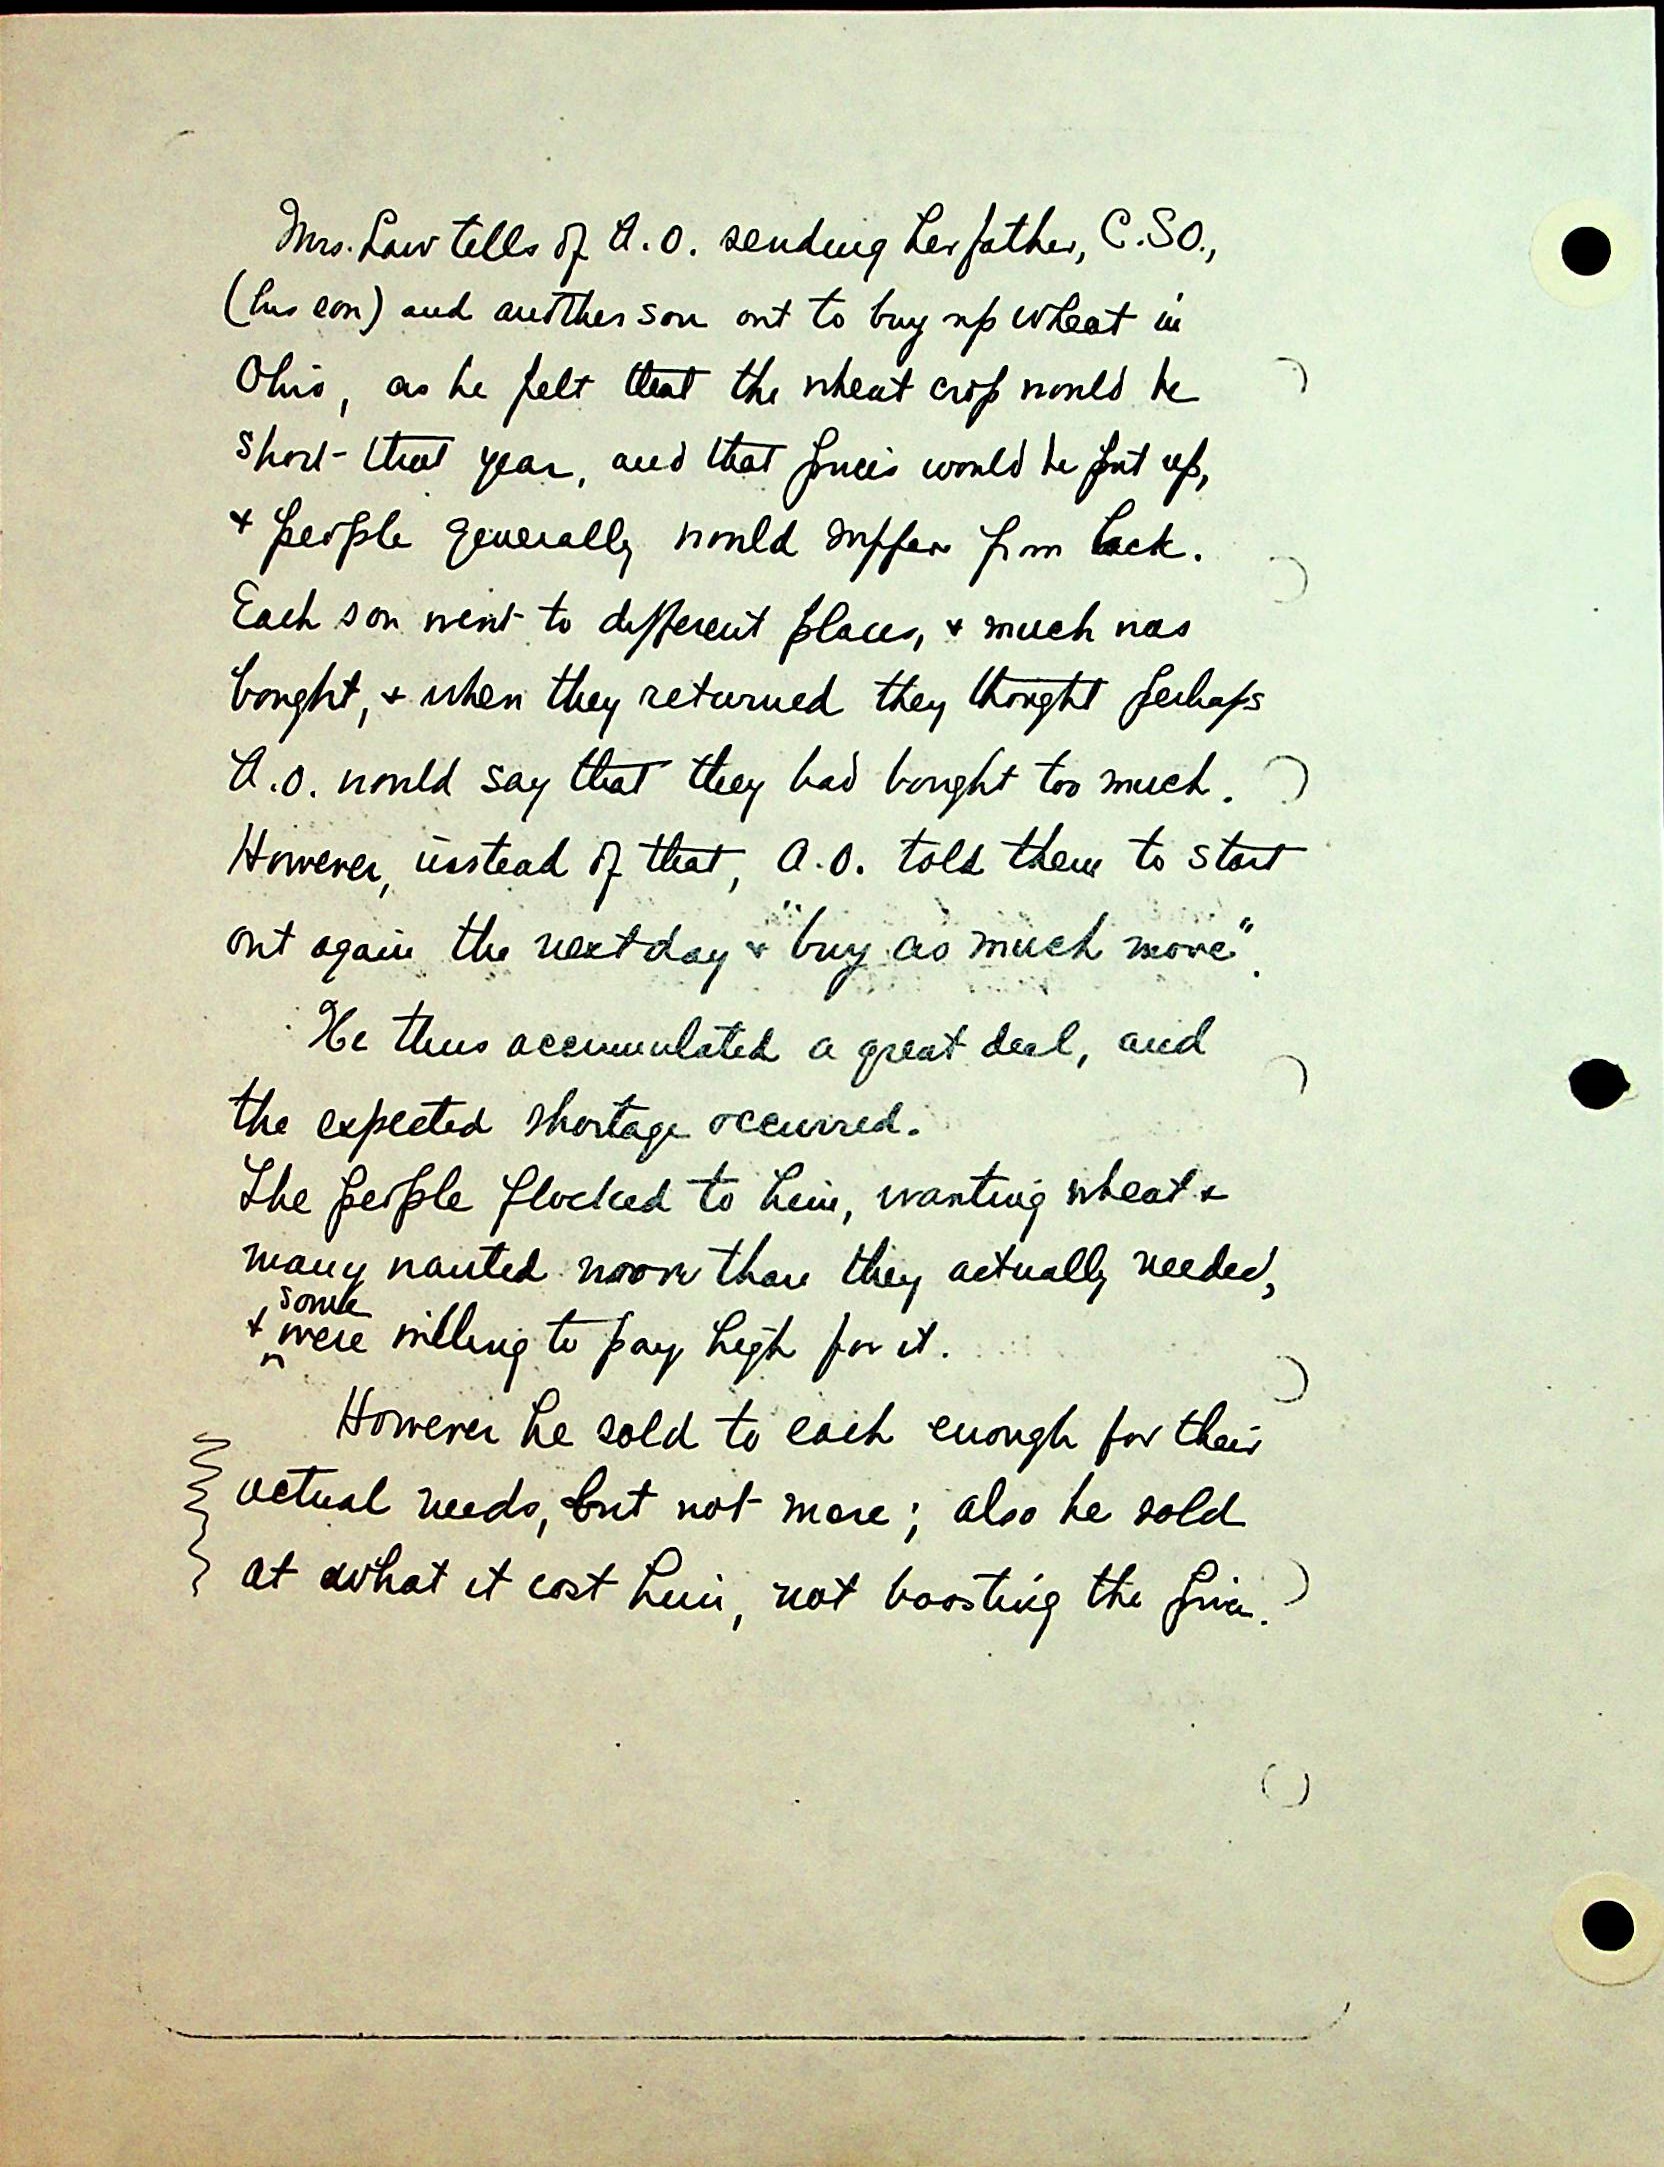 Mrs. Law tells of A.O. sending her father, C.S.O.,
(his son) and another son out to buy up wheat in
Ohio, as he felt that the wheat crop would be
short that year, and that prices would be put up,
& people generally would suffer from lack.
Each son went to different places, & much was
bought, & when they returned they thought perhaps
A.O. would say that they had bought too much.
However, instead of that, A.O. told them to start
out again the next day & "buy as much more".
He thus accumulated a great deal, and
the expected shortage occurred.
The people flocked to him, wanting wheat &
many wanted more than they actually needed,
& some were willing to pay high for it.
However he sold to each enough for their
actual needs, but not more; also he sold
at what it cost him, not boosting the price.